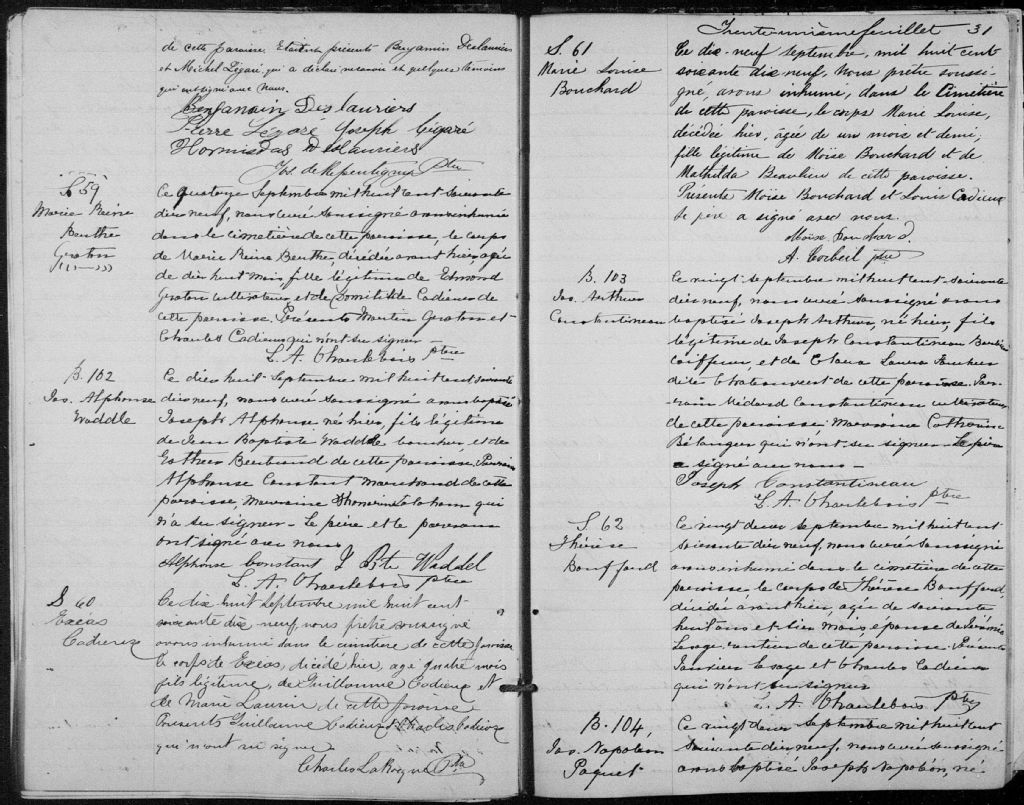 de cette paroisse. Etaient présents Benjamin Deslauriers
et Michel Légaré, qui a déclaré ne savoir et quelques témoins
qui ont signé avec Nous.
Benjamain Deslauriers
Pierre Légaré Joseph Légaré
Hormisdas Deslauriers
Jos. de Repentigny Ptre
S 59
Marie Reine
Berthe
Graton
Ce quatorze Septembre mil huit cent soixante
dix neuf, nous curé soussigné avons inhumé
dans le cimetière de cette paroisse, le corps
de Marie Reine Berthe, décédée avant hier, agée
de dix huit mois, fille légitime de Edmond
Graton cultivateur et de Domitilde Cadieux de
cette paroisse. Présents Martin Graton et
Charles Cadieux qui n'ont su signer—
L. A. Charlebois Ptre
B. 102
Jos. Alphonse
Waddle
Ce dix huit Septembre mil huit cent soixante
dix neuf, nous curé soussigné avons baptisé
Joseph Alphonse, né hier, fils légitime
de Jean Baptiste Waddle boucher, et de
Esther Bertrand de cette paroisse. Parrain
Alphonse Constant marchand de cette
paroisse, Marraine qui
n'a su signer— Le père et le parrain
ont signé avec nous
Alphonse Constant J Bte Waddel
L. A. Charlebois ptre
S 60
Exeas
Cadieux
Ce dix huit Septembre mil huit cent
soixante dix neuf, nous prêtre soussigné
avons inhumé dans le cimetière de cette paroisse
le corps de Exeas, décédé hier, agé quatre mois
fils légitime, de Guillaume Cadieux et
de Marie Laurin de cette paroisse
Présents Guillaume Cadieux & Charles Cadieux
qui n'ont su signer
Charles LaRocque Ptre
Trente-unième feuillet 31
S. 61
Marie Louise
Bouchard
Ce dix-neuf septembre, mil huit cent
soixante dix neuf, Nous prêtre soussi-
gné, avons inhumé, dans le Cimetière
de cette paroisse, le corps Marie Louise,
décédée hier, âgée de un mois et demi,
fille légitime de Moïse Bouchard et de
Mathilda Beaulieu de cette paroisse.
Présents Moïse Bouchard et Louis Cadieux
le père a signé avec nous.
Moïse Bouchard.
A. Corbeil ptre
B. 103
Jos. Arthur
Constantineau
Ce vingt septembre mil huit cent soixante
dix neuf, nous curé soussigné avons
baptisé Joseph Arthur, né hier, fils
légitime de Joseph Constantineau Barbier
coiffeur, et de Clara Laura
dite de cette paroisse. Par-
rain Médard Constantineau cultivateur
de cette paroisse Marraine Catherine
Bélanger qui n'ont su signer— Le père
a signé avec nous—
Joseph Constantineau
L. A. Charlebois ptre
S. 62
Thérèse
Bouffard
Ce vingt deux septembre mil huit cent
soixante dix neuf, nous curé soussigné
avons inhumé dans le cimetière de cette
paroisse, le corps de Thérèse Bouffard,
décédée avant hier, agée de soixante
huit ans et six mois, épouse de Jérémie
Lesage rentier de cette paroisse. Présents
Janvier Lesage et Charles Cadieux
qui n'ont su signer
L. A. Charlebois Ptre
B. 104,
Jos. Napoléon
Paquet
Ce vingt deux Septembre mil huit cent
soixante dix neuf, nous curé soussigné
avons baptisé Joseph Napoléon, né